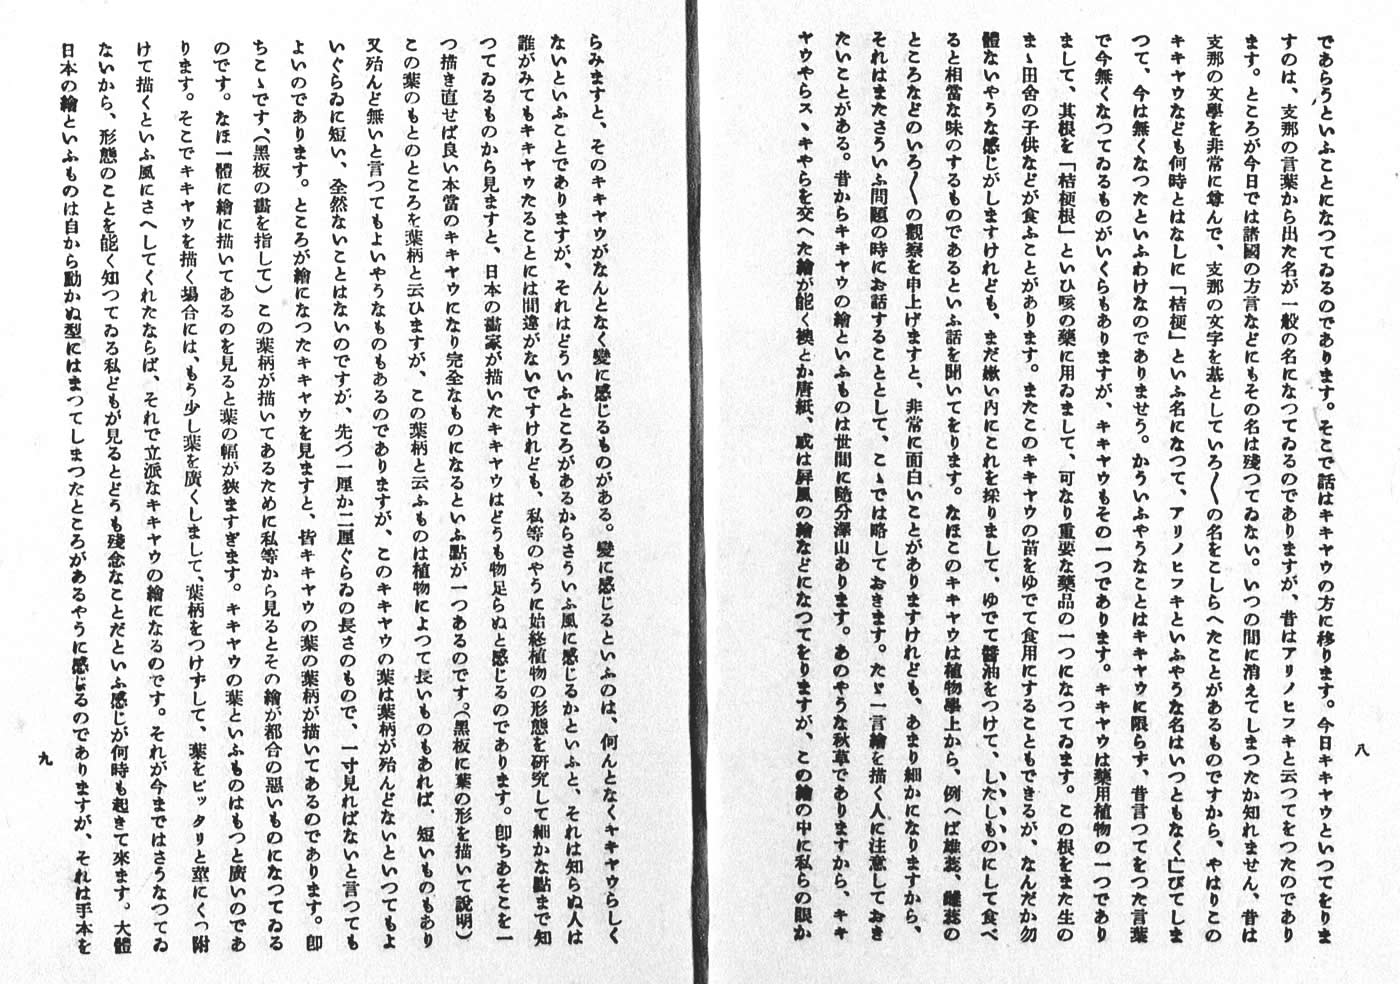 であらうといふことになつてゐるのであります。そこで話はキキヤウの方に移ります。今日キキヤウといつてをりま
すのは、支那の言葉から出た名が一般の名になつてゐるのでありますが、昔はアリノヒフキと云つてをつたのであり
ます。ところが今日では諸國の方言などにもその名は殘つてゐない。いつの間に消えてしまつたか知れません、昔は
支那の文學を非常に尊んで、支那の文字を基としていろ〱の名をこしらへたことがあるものですから、やはりこの
キキヤウなども何時とはなしに「桔梗」といふ名になつて、アリノヒフキといふやうな名はいつともなく亡びてしま
つて、今は無くなつたといふわけなのでありませう。かういふやうなことはキキヤウに限らず、昔言つてをつた言葉
で今無くなつてゐるものがいくらもありますが、キキヤウもその一つであります。キキヤウは藥用植物の一つであり
まして、其根を「桔梗根」といひ咳の藥に用ゐまして、可なり重要な藥品の一つになつてゐます。この根をまた生の
まゝ田舍の子供などが食ふことがあります。またこのキキヤウの苗をゆでて食用にすることもできるが、なんだか勿
體ないやうな感じがしますけれども、まだ嫩い内にこれを採りまして、ゆでて醬油をつけて、したしものにして食べ
ると相當な味のするものであるといふ話を聞いてをります。なほこのキキヤウは植物學上から、例へば雄蕊、雌蕊の
ところなどのいろ〱の觀察を申上げますと、非常に面白いことがありますけれども、あまり細かになりますから、
それはまたさういふ問題の時にお話することとして、こゝでは略しておきます。たゞ一言繪を描く人に注意しておき
たいことがある。昔からキキヤウの繪といふものは世間に隨分澤山あります。あのやうな秋草でありますから、キキ
ヤウやらスヽキやらを交へた繪が能く襖とか唐紙、或は屛風の繪などになつてをりますが、この繪の中に私らの眼か
八
らみますと、そのキキヤウがなんとなく變に感じるものがある。變に感じるといふのは、何んとなくキキヤウらしく
ないといふことでありますが、それはどういふところがあるからさういふ風に感じるかといふと、それは知らぬ人は
誰がみてもキキヤウたることには間違がないですけれども、私等のやうに始終植物の形態を硏究して細かな點まで知
つてゐるものから見ますと、日本の畫家が描いたキキヤウはどうも物足らぬと感じるのであります。卽ちあそこを一
つ描き直せば良い本當のキキヤウになり完全なものになるといふ點が一つあるのです。(黑板に葉の形を描いて說明)
この葉のもとのところを葉柄と云ひますが、この葉柄と云ふものは植物によつて長いものもあれば、短いものもあり
又殆んど無いと言つてもよいやうなものもあるのでありますが、このキキヤウの葉は葉柄が殆んどないといつてもよ
いぐらゐに短い、全然ないことはないのですが、先づ一厘か二厘ぐらゐの長さのもので、一寸見ればないと言つても
よいのであります。ところが繪になつたキキヤウを見ますと、皆キキヤウの葉の葉柄が描いてあるのであります。卽
ちこゝです、(黑板の畫を指して)この葉柄が描いてあるために私等から見るとその繪が都合の惡いものになつてゐる
のです。なほ一體に繪に描いてあるのを見ると葉の幅が狹ますぎます。キキヤウの葉といふものはもつと廣いのであ
ります。そこでキキヤウを描く場合には、もう少し葉を廣くしまして、葉柄をつけずして、葉をピッタリと莖にくつ附
けて描くといふ風にさへしてくれたならば、それで立派なキキヤウの繪になるのです。それが今まではさうなつてゐ
ないから、形態のことを能く知つてゐる私どもが見るとどうも殘念なことだといふ感じが何時も起きて來ます。大體
日本の繪といふものは自から動かぬ型にはまつてしまつたところがあるやうに感じるのでありますが、それは手本を
九